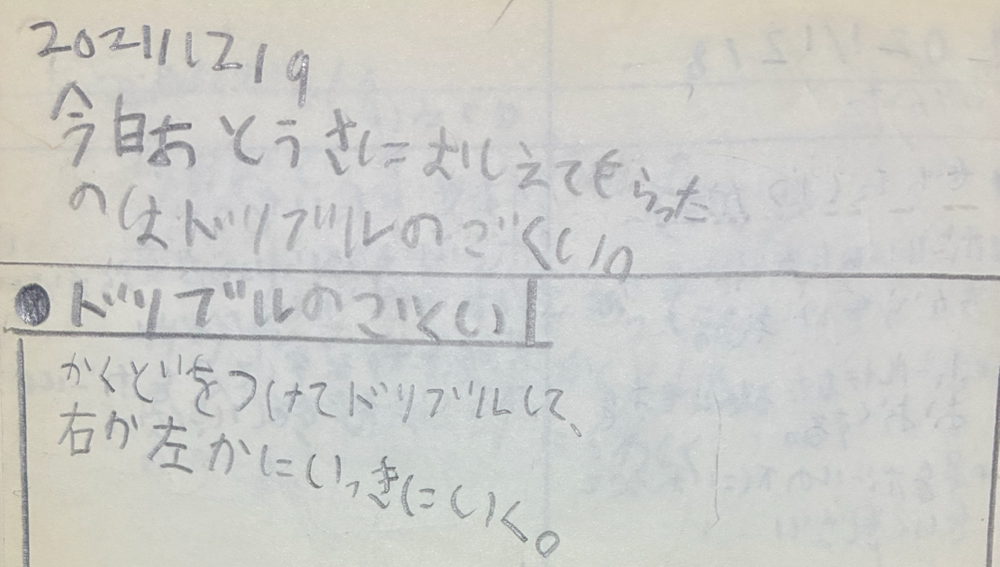 2021/12/19
今日おとうさにおしえてもらった
のはドリブルのごくい。
●ドリブルのごくい
かくどをつけてドリブルして、
右か左かにいっきにいく。